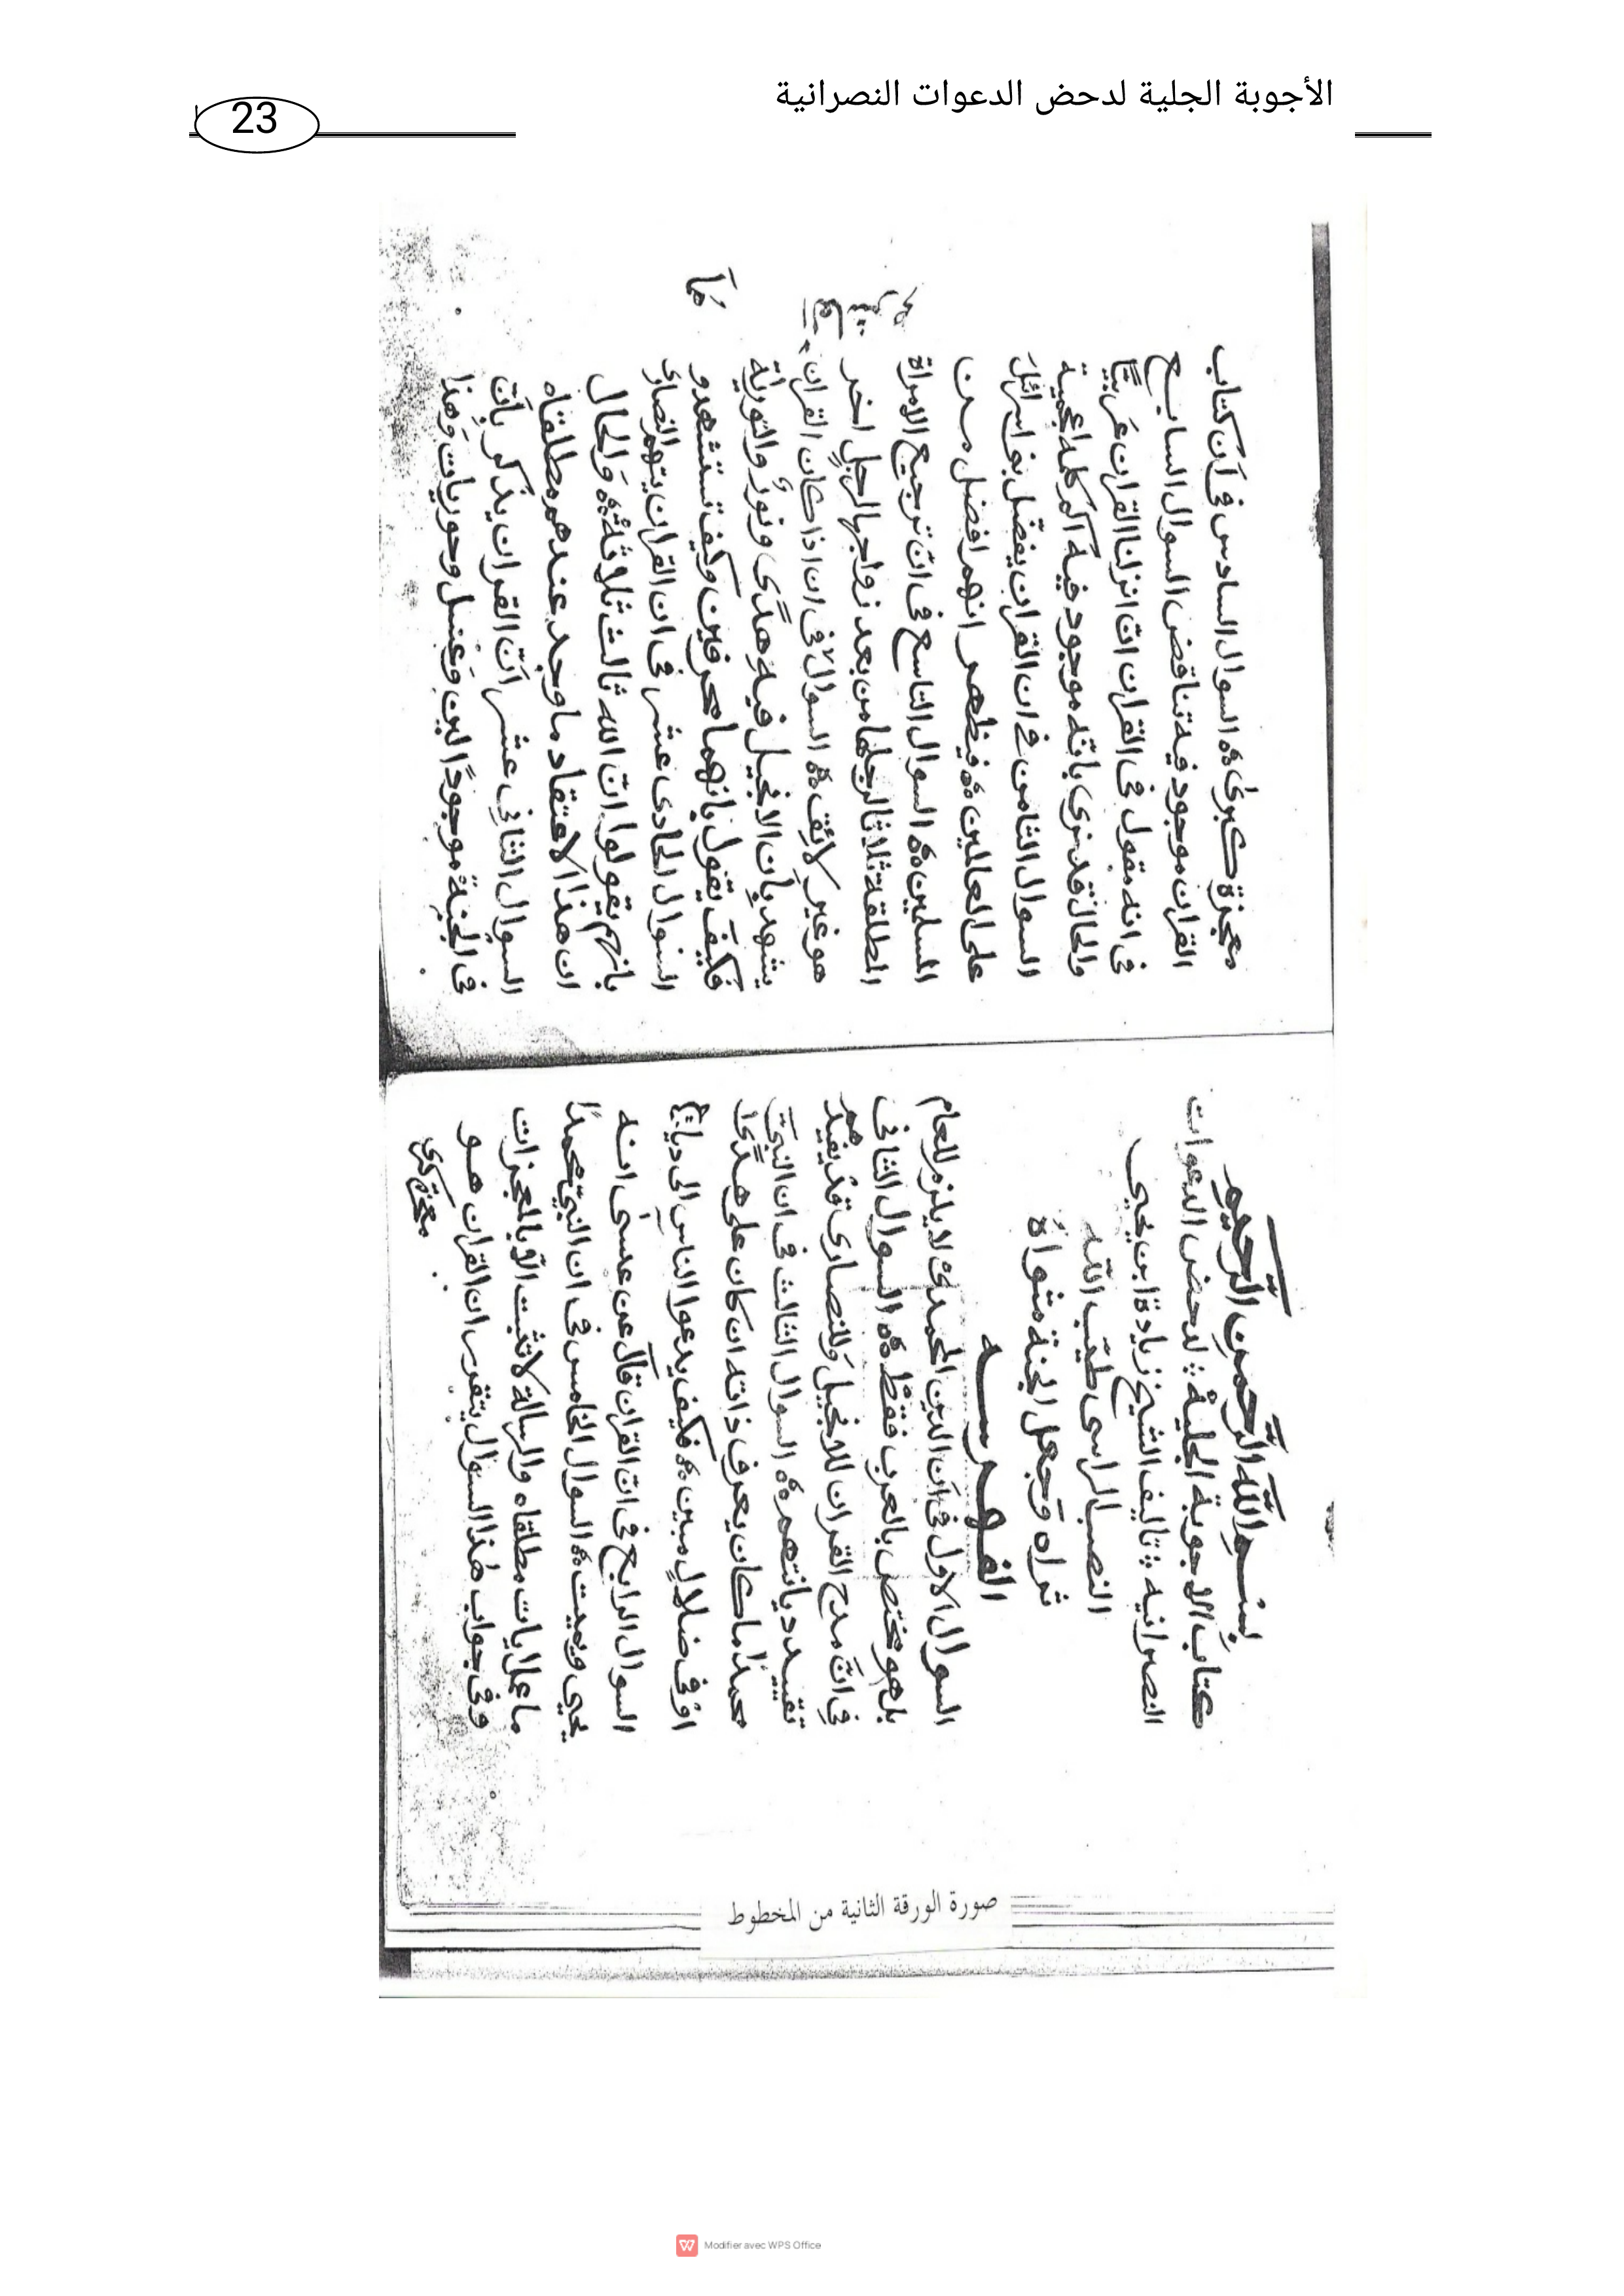 الأجوبة الجلية لدحض الدعوات النصرانية
23
بسم الله الرحمن الرحيم
كتاب الاجوبة الجلية لدحض الدعوات
النصرانيه تاليف الشيخ زيادة ابن يحيى
النصب الراسى طيّب الله
ثراه وَجعل الجنة مثواهُ
الفهرسه
السوال الاول فى اَن الدين المحمدىّ لا يلزم للعام
بل هو مختص بالعرب فقط السوال الثانى
فى انّ مدح القران للانجيل وَللنصارى قد يفيدهم
تقييد ديانتهم السوال الثالث فى ان النبىّ
محمدًا ما كان يعرف ذاته ان كان على هدًى
اوْ فى ضلالٍ مبين فكيف يدعوا الناس الى ديانة
السوال الرابع فى انّ القران قال عن عيسى انه
يحيى ويميت السوال الخامس فى ان النبىّ محمدًا
ما عمل ايات مطلقاه والرسالة لا تثبت الّا بالمعجزات
وفى جواب هذا السوال يتقرر ان القران هو
معجزة كبرى
معجزة كبرىٰ السوال السادس فى اَن كتاب
القران موجود فيه تناقض السوال السابع
فى انه مقول فى القران انّا انزلنا القران عَربيًّا
والحال قد نرى بانّه موجود فيه اكم كلمه اعجمية
السوال الثامن فى ان القران يفضّل بنو اسرائل
على العالمين فيظهر انهم افضل مـن
المسلمين السوال التاسع فى انّ ترجيع الامراة
المطلقة ثلاثا لرجلها من بعد زواجها لرجلٍ اخر
هو غير لائق السوال العاشر فى ان اذا كان القران
يشهد بِاَن الانجيل فيه هدًى ونورٌ والتورية
فكيف تقول بانهما محرفين وكيف تستشهدو
السوال الحادى عشر فى ان القران يتهم النصارى
بانهم يقولوا انّ الله ثالث ثلاثةٍ وَالحال
ان هذا الاعتقاد ما وجد عندهم مطلقاه
السوال الثانى عشر اَنّ القران يذكر بِاَن
فى الجنة موجودًا لبن وَعسل وحوريات وَهذا
صورة الورقة الثانية من المخطوط
Modifier avec WPS Office